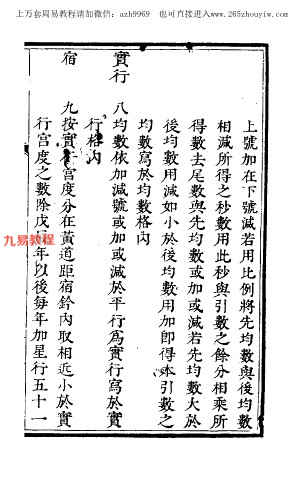 上万套周易教程请加微信：azh9969 也可直接进入www.265zhouyiw.com
上號加在下號減若用比例將先均數與後均數
相減所得之秒數用此秒與引數之餘分相乘所
得數去尾數與先均數或加或減若先均數大於
後均數用減如小於後均數用加即得本引數之
均數寫於均數格內
實行
八均數依加減號或加或減於平行為實行寫於
行格內
宿
九按實行宮度分在黃道距宿鈐內取相近小於實
行宮度之數除戊年以後每年加星行五十一
九易教程